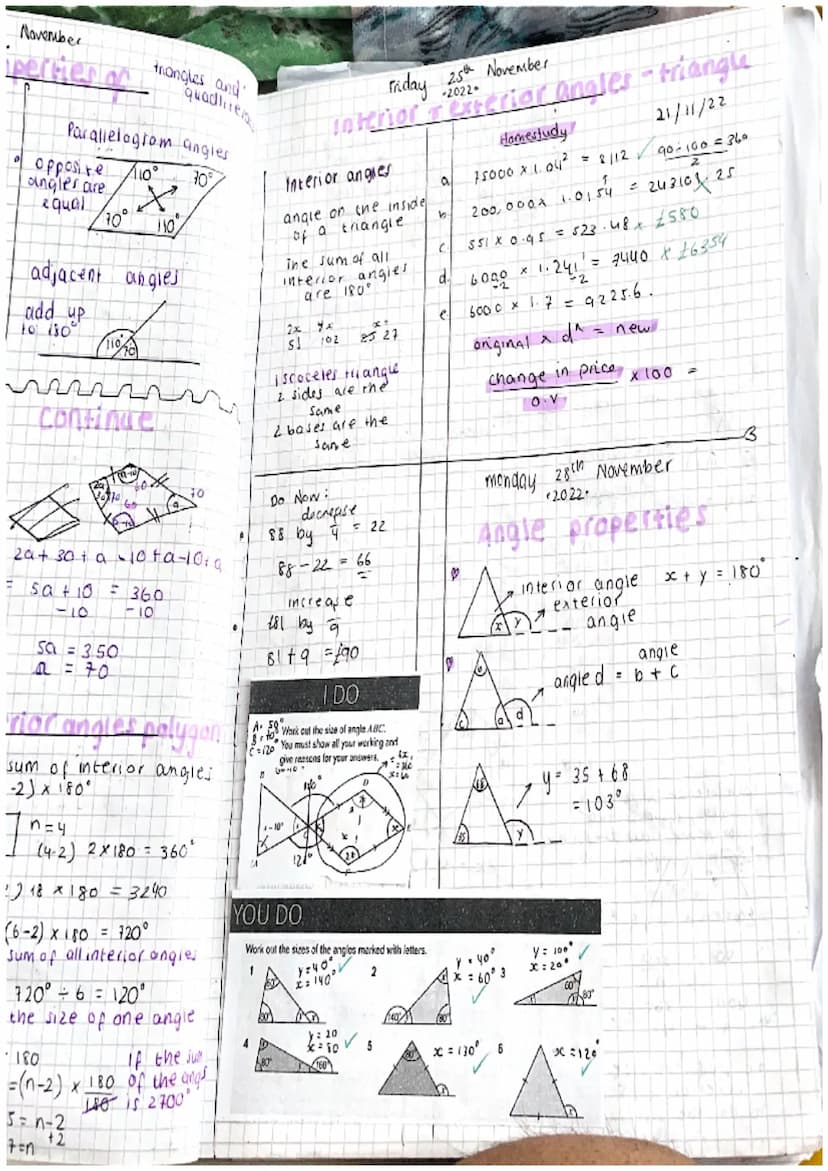 November
perties of
triangles and
quadrilateral
Parallelogram angles
opposite
angles are
equal
110°
70°
70°
110°
adjacent angles
add up
to 180°
110°
70
continue
2a + 30 + a - 10 + a - 10 + a
= 5a + 10 = 360
-10 -10
5a = 350
a = 70
rior angles polygon
sum of interior angles
-2) x 180°
n = 4
(4-2) 2 x 180 = 360°
) 18 x 180 = 3240
(6-2) x 180 = 720°
sum of all interior angles
720° ÷ 6 = 120°
the size of one angle
180
= (n-2) x 180
180
If the sum
of the angs
is 2700°
5 = n-2
+2
7 = n
Friday 25th November
·2022·
Interior & exterior angles - triangle
Interior angles
angle on the inside
of a triangle
The sum of all
interior angles
are 180°
51 102 27
Isoceles triangle
2 sides are the
same
2 bases are the
same
Homestudy
21/11/22
a 75000 x 1.04² = 8112
90 ÷ 100 = 360
2
b 200,000 x 1.0154 = 243101.25
c. 551 x 0.95 = 523.48 x £580
d. 6000 x 1.241 = 7440 x £6354
-2 -2
e. 6000 x 1.7 = 9225.6.
original x dⁿ = new
change in price x 100 =
o.v
Do Now:
decrease
88 by 4 = 22
88 - 22 = 66
increase
£81 by 9
81 + 9 = £90
Monday 28th November
·2022·
Angle properties
interior angle x + y = 180°
exterior
angle
x y
angle
angle d = b + c
c a d
y = 35 + 68
= 103°
68
35 y
I DO
A = 50°
C = 120°
Work out the size of angle ABC.
You must show all your working and
give reasons for your answers.
YOU DO
Work out the sizes of the angles marked with letters.
1 y = 40° x = 140°
2 y = 40° x = 60°
3 y = 100° x = 20°
4 y = 20 x = 80
5 x = 130°
6 x = 120°